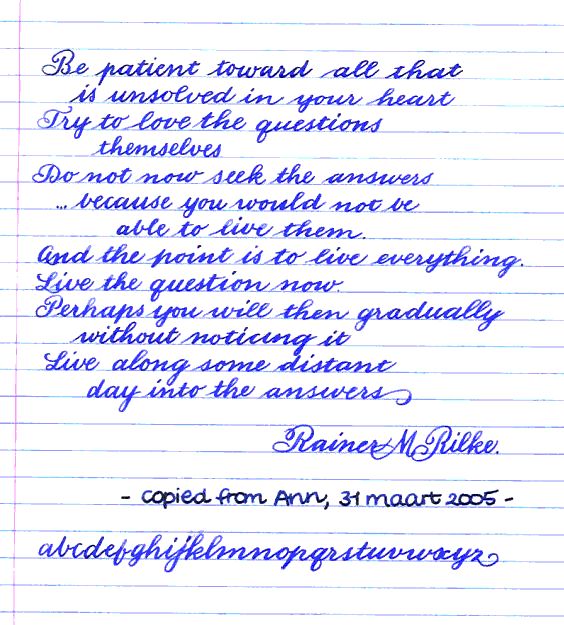 Be patient toward all that
is unsolved in your heart
Try to love the questions
themselves
Do not now seek the answers
... because you would not be
able to live them.
And the point is to live everything.
Live the question now.
Perhaps you will then gradually
without noticing it
Live along some distant
day into the answers
Rainer M Rilke.
- copied from Ann, 31 maart 2005 -
abcdefghijklmnopqrstuvwxyz